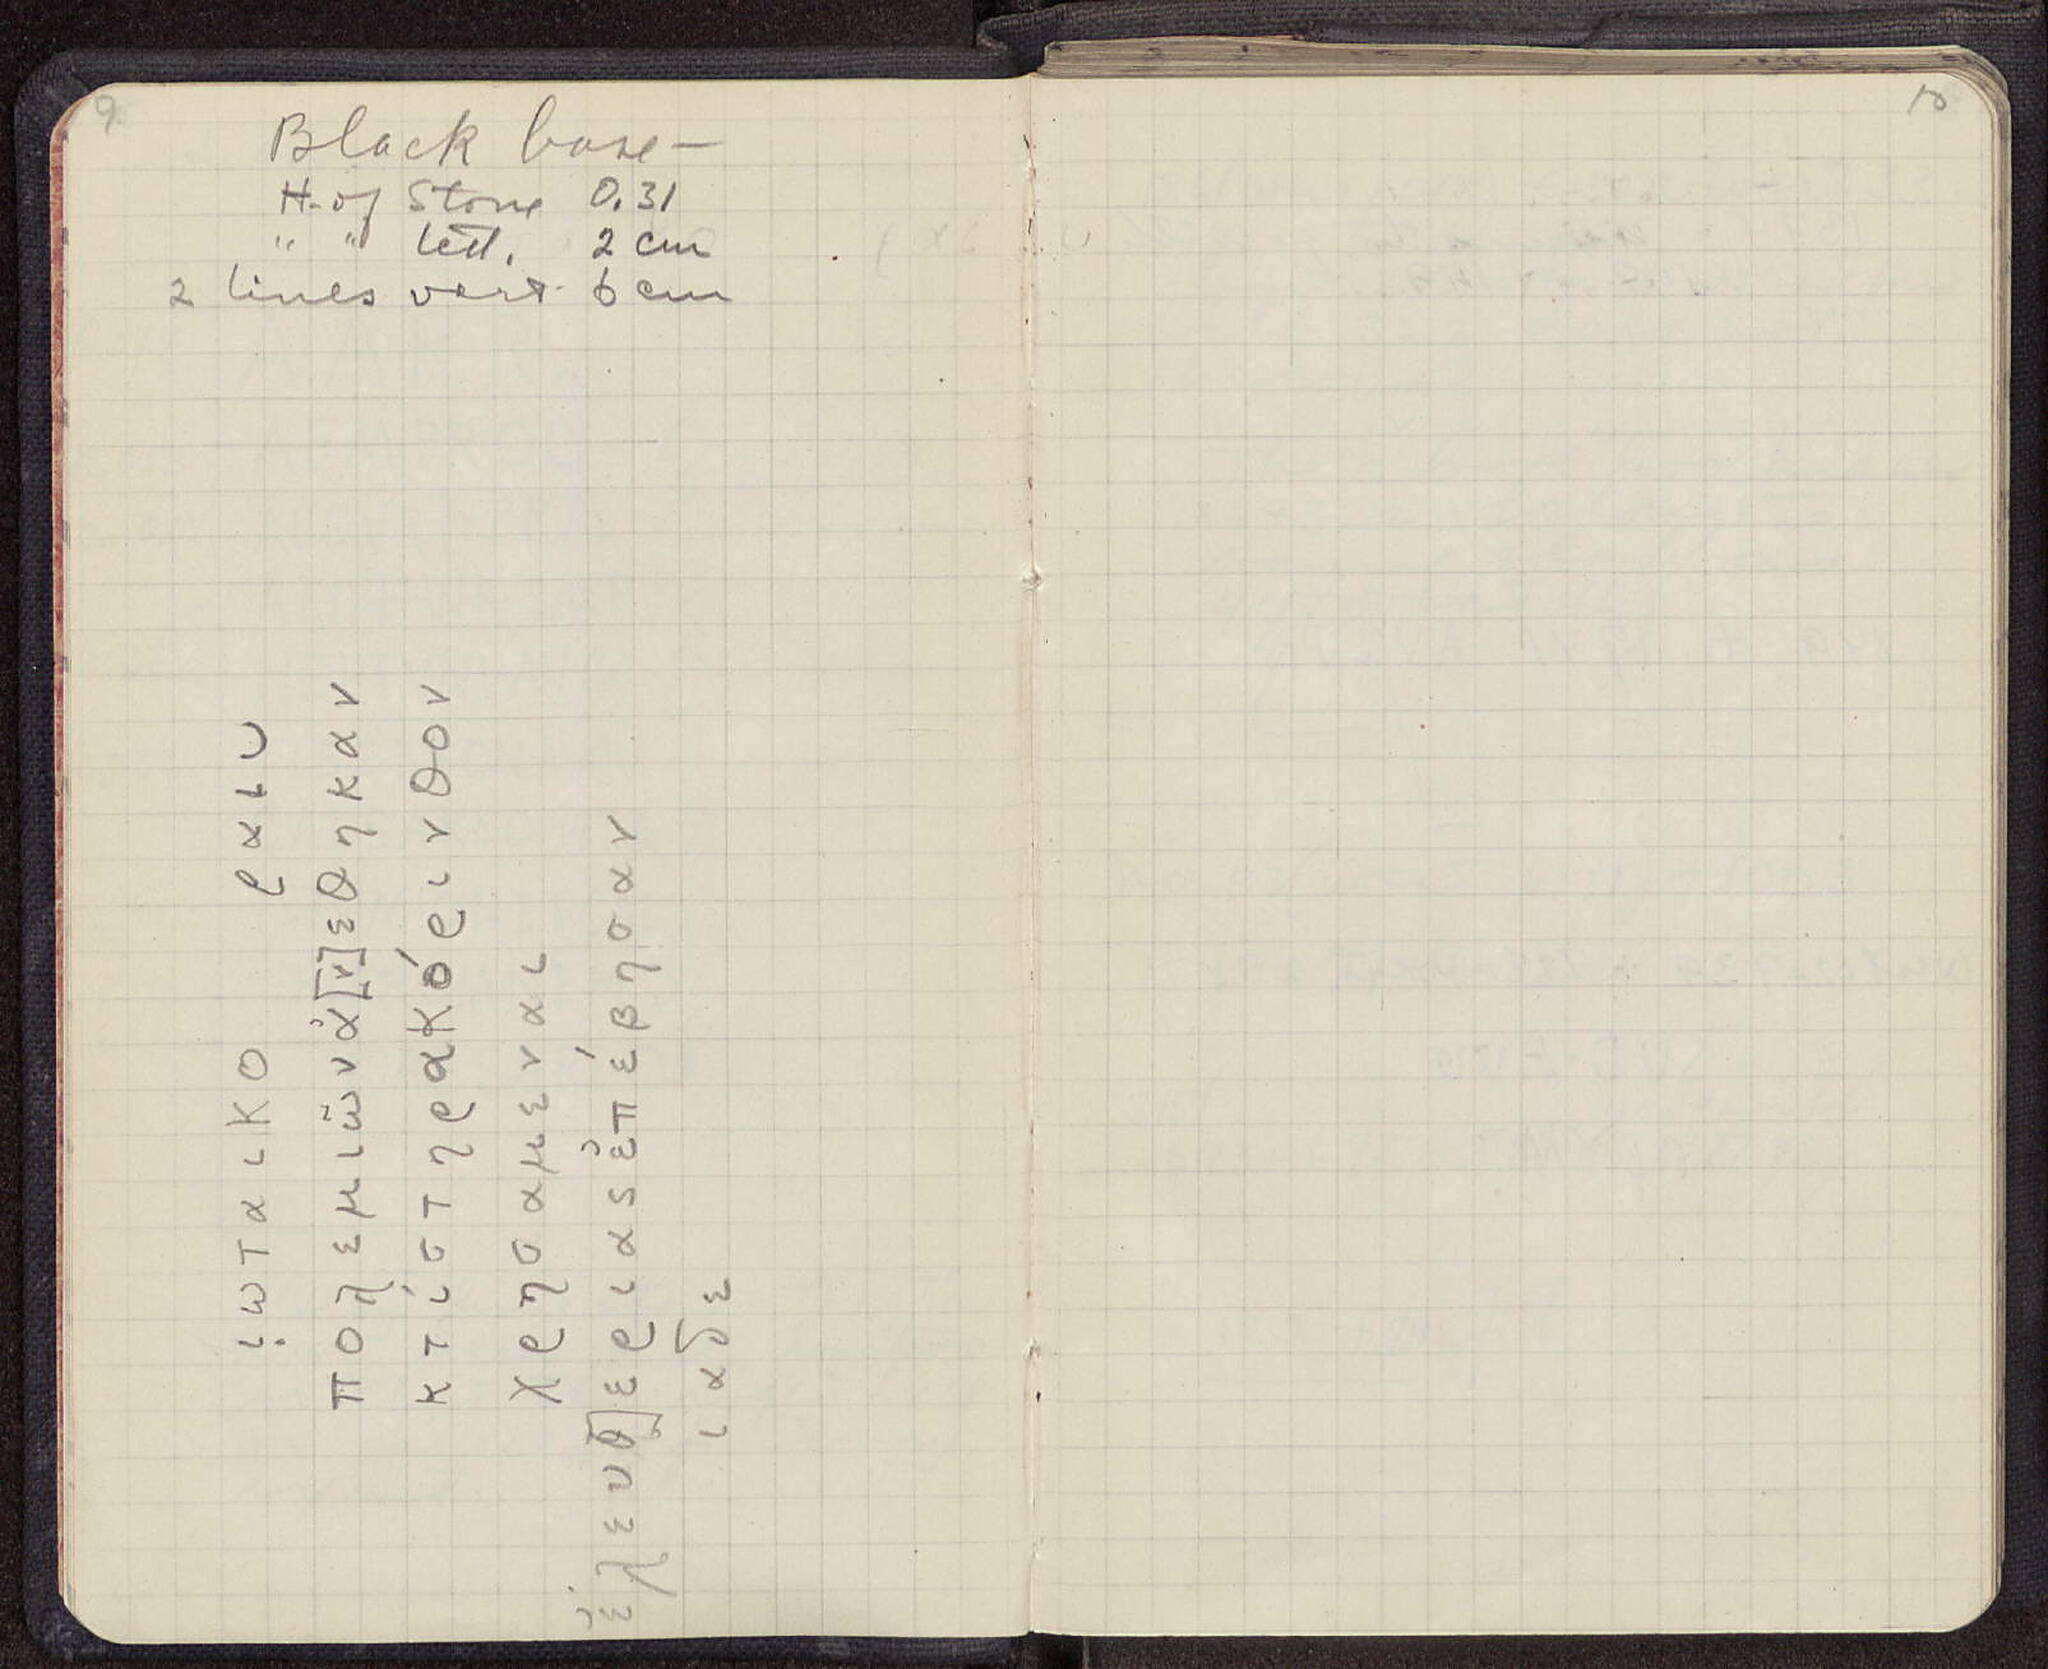 9
Black base —
H. of Stone 0.31
" " lett. 2 cm
2 lines vert. 6 cm
ι̣ωταικο ραιυ
πολεμιω̃νἀ[ν]εθηκαν
κτίστηρακόρινθον
χρησαμεναι
ἐλευ[θ]εριαςἐπέβησαν
ιαδε
10